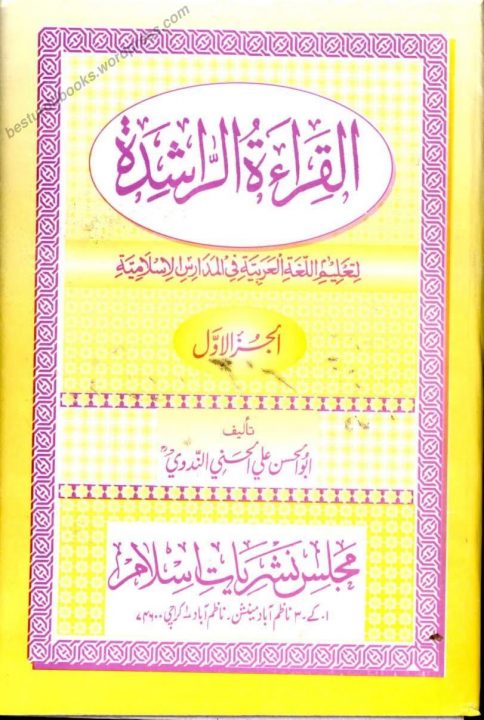 besturdubooks.wordpress.com
القِرَاءَةُ الرَّاشِدَة
لِتَعْلِيْمِ اللُّغَةِ الْعَرَبِيَّةِ فِي الْمَدَارِسِ الْإِسْلَامِيَّةِ
الجُزْءُ الاَوَّل
تأليف
ابو الحسن علي الحسني الندوي
مجلس نشریات اسلام
۱۔کے۔۳ ناظم آباد مینشن۔ ناظم آباد ۱ کراچی ۷۴۶۰۰